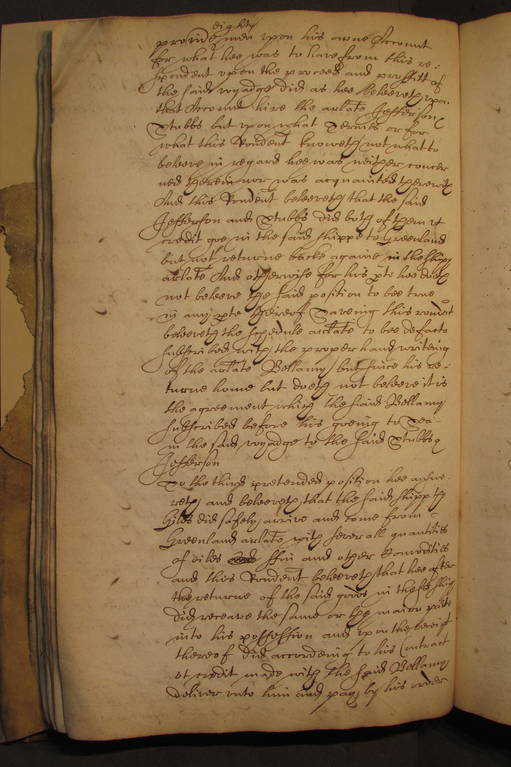 eighty
provide men upon his owne Account
for what hee was to have from this re:
spondent upon the proceed and proffitt of
the said voyadge did as hee beleeveth upon
that Account hire the arlate Jefferson
Stubbs but upon what termes or for
what this Rondent knoweth not what to
beleeve in regard hee was neither concer
ned therein nor was acquainted therewith
And this Rondent beleeveth that the said
Jefferson and Stubbs did both of them ut
credit goe in the said shippe to Greenland
but not returne backe againe in the shipp
arlate And otherwise for his pte hee doeth
not beleeve the said position to bee true
in any pte thereof Saveing this rondent
beleeveth the scedule arlate to bee de facto
subscribed with the proper hand writeing
of the arlate Bellamy but since his re:
turne home but doeth not beleeve it is
the agreement which the said Bellamy
subscribed before his goeing to Sea
in the said voyadge to the said Stubbs &
Jefferson
To the third pretended position hee answe
reth and beleeveth that the said shipp the
did safely arrive and come from
Greenland arlate with severall quantities
of oiles ffin and other Comodities
and this Rondent beleeveth that hee after
the returne of the said goods in the shipp
did receave the same or the maior parte
into his possession and upon the receipt
thereof did according to his Contract
ut credit made with the said Bellamy
deliver unto him and pay by his order